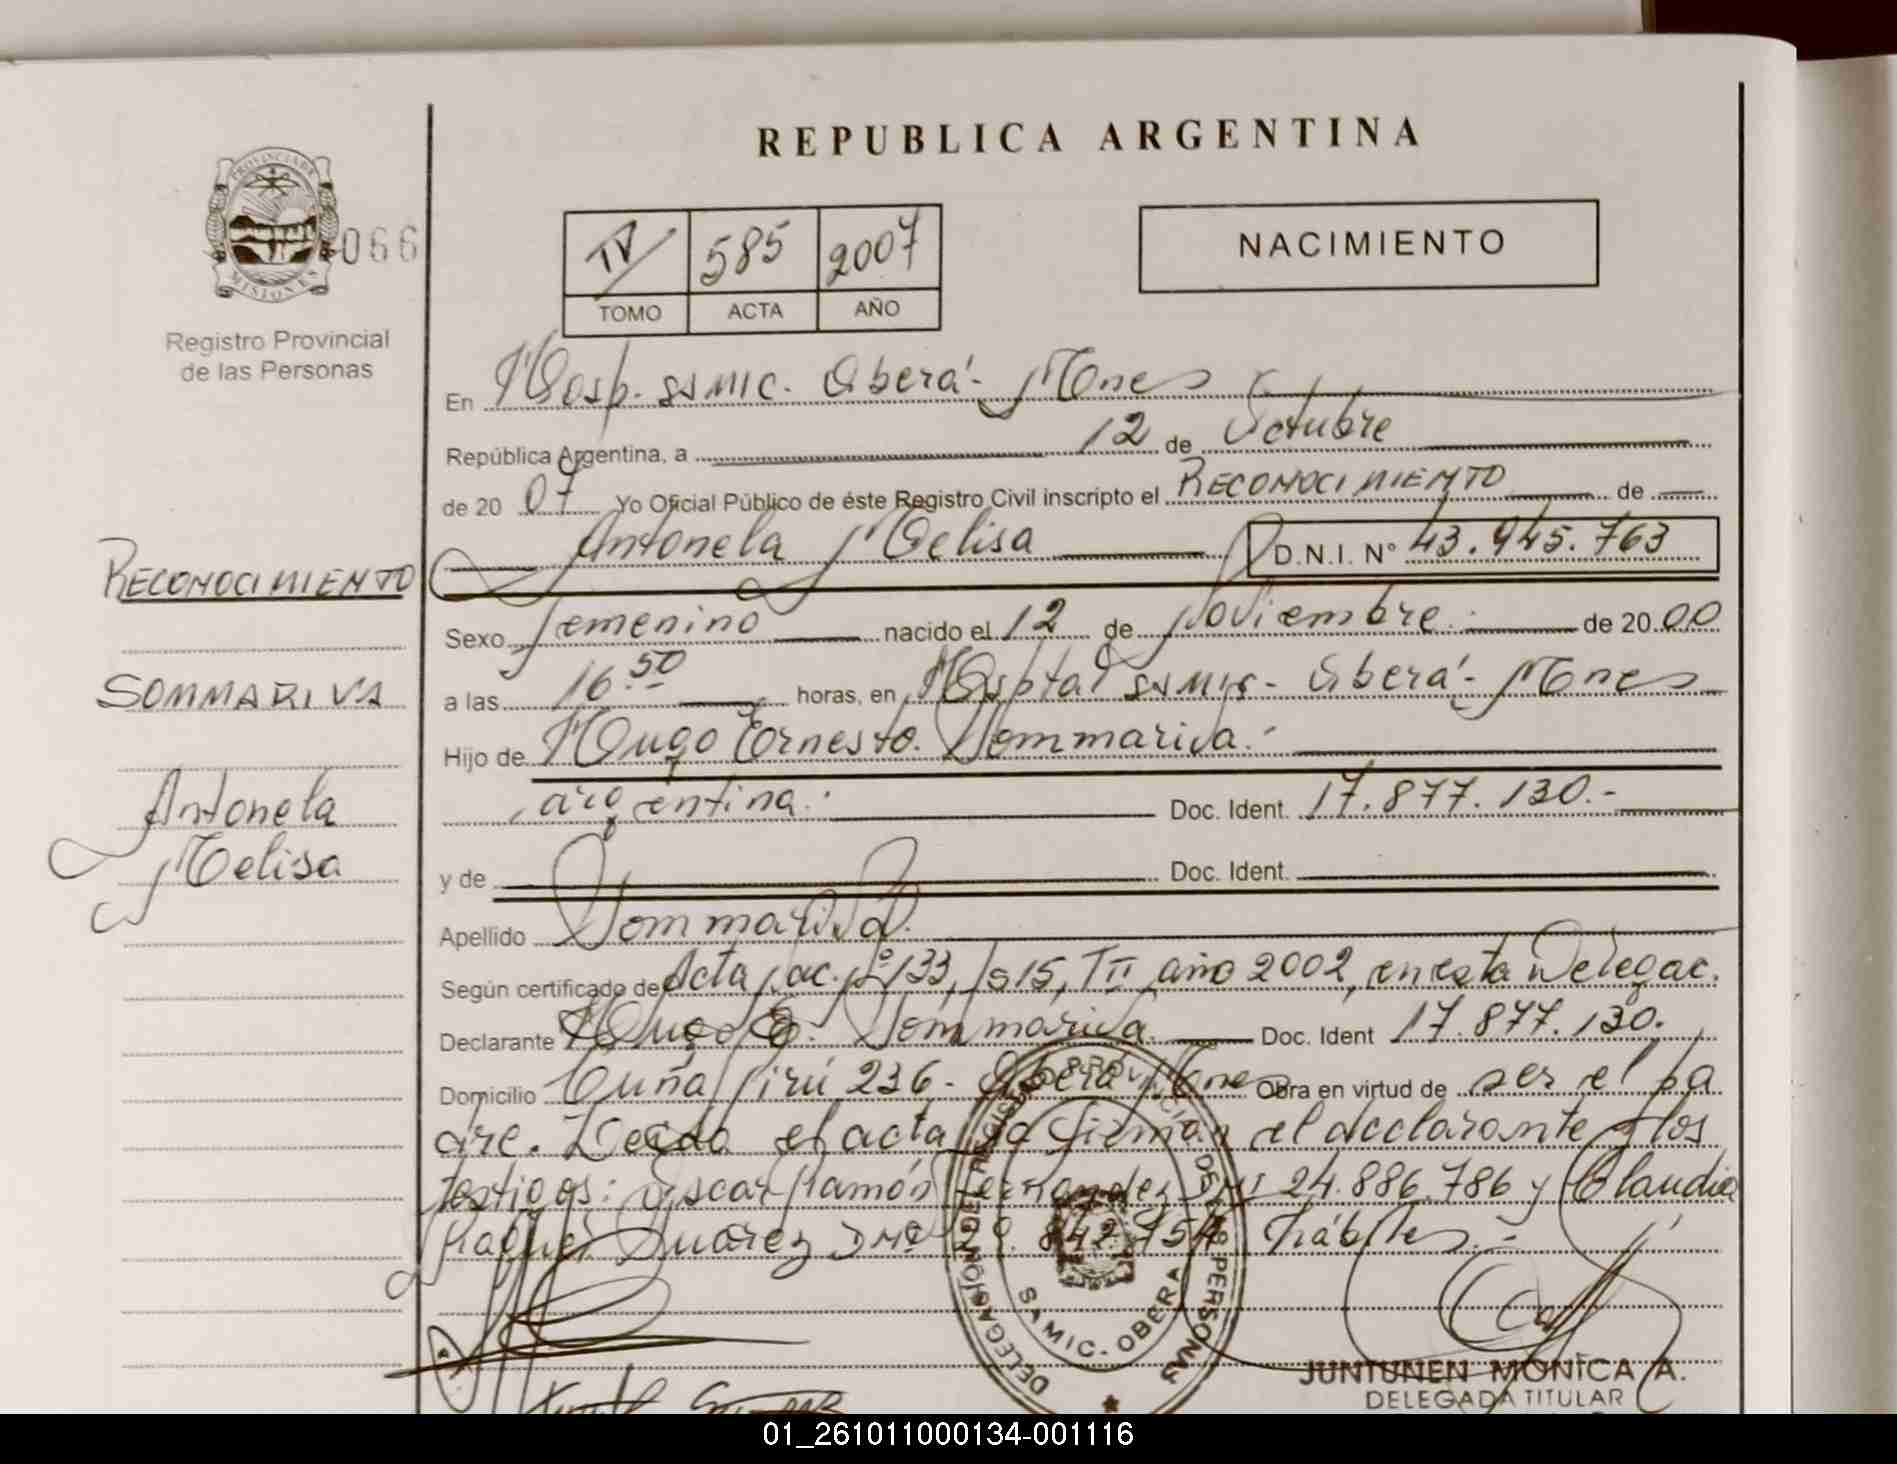 REPUBLICA ARGENTINA
PROVINCIA DE
MISIONES
066
Registro Provincial
de las Personas
IV 585 2007
TOMO ACTA AÑO
NACIMIENTO
En Hosp. SAMIC. Oberá- Mnes
República Argentina, a 12 de Octubre
de 20 07 Yo Oficial Público de éste Registro Civil inscripto el RECONOCIMIENTO de
Antonela Melisa D.N.I. N° 43.945.763
Sexo femenino nacido el 12 de Noviembre. de 20 00
a las 16.50 horas, en Hosptal SAMIC- Oberá- Mnes
Hijo de Hugo Ernesto Sommariva.-
argentina.- Doc. Ident. 17.877.130.-
y de Doc. Ident.
Apellido Sommariva.
Según certificado de Acta Nac. Nº 133, Fs 15, T II año 2002, en esta Delegac.
Declarante Hugo E. Sommariva. Doc. Ident 17.877.130.
Domicilio Cuña Pirú 236- Oberá Mnes Obra en virtud de ser el pa
dre. Leída el acta la firman el declarante y los
testigos: Oscar Ramón Fernandez DNI 24.886.786 y Claudia
Raquel Suárez DNI 29.842.754 hábiles.-
RECONOCIMIENTO
SOMMARIVA
Antonela
Melisa
DELEGACIÓN DEL REGISTRO PROVINCIAL DE LAS PERSONAS
SAMIC. OBERA
JUNTUNEN MONICA A.
DELEGADA TITULAR
01_261011000134-001116